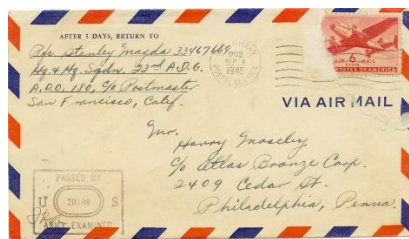 AFTER 5 DAYS, RETURN TO
Pfc. Stanley Magda 33467669
Hq. & Hq. Sqdn. 23rd A.D.G.
A.P.O. 180, c/o Postmaster
San Francisco, Calif.
SEP 4
1945
AIR 6 MAIL
UNITED STATES OF AMERICA
VIA AIR MAIL
Mr.
Harry Moseley
c/o Atlas Bronze Corp.
2409 Cedar St.
Philadelphia, Penna.
PASSED BY
U S
ARMY EXAMINER